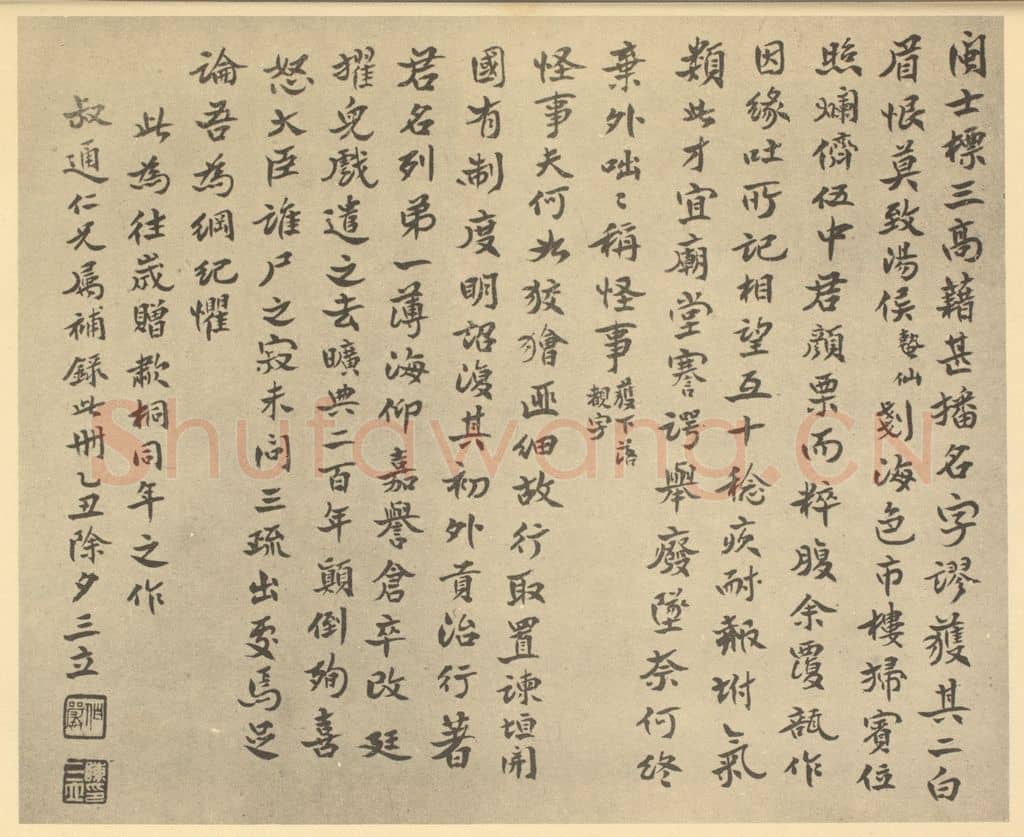 閩士標三高藉甚播名字謬獲其二白
眉恨莫致湯侯蟄仙剗海色市樓掃賓位
照爛儕伍中君顔栗而粹腹余覆瓿作
因緣吐所記相望五十稔耐坿氣
類此才宜廟堂謇諤舉廢墜奈何終
棄外咄〻稱怪事獲下落觀字
怪事夫何此狡獪匪細故行取置諫垣開
國有制度明詔復其初外貢治行著
君名列弟一薄海仰嘉譽倉卒改廷
擢兒戲遣之去曠典二百年顛倒殉喜
怒大臣誰尸之寂未問三疏出處焉足
論吾為綱紀懼
此為往歲贈歗桐同年之作
叔通仁兄属補錄此冊乙丑除夕三立
伯嚴
陳印三立
Shufawang.CN